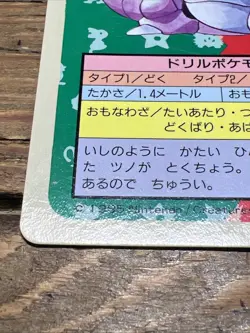 ドリルポケモ
タイプ1/どく タイプ2/
たかさ/1.4メートル おも
おもなわざ/たいあたり・つ
どくばり・あば
いしのように かたい ひ
た ツノが とくちょう。
あるので ちゅうい。
© 1995 Nintendo, Creatures